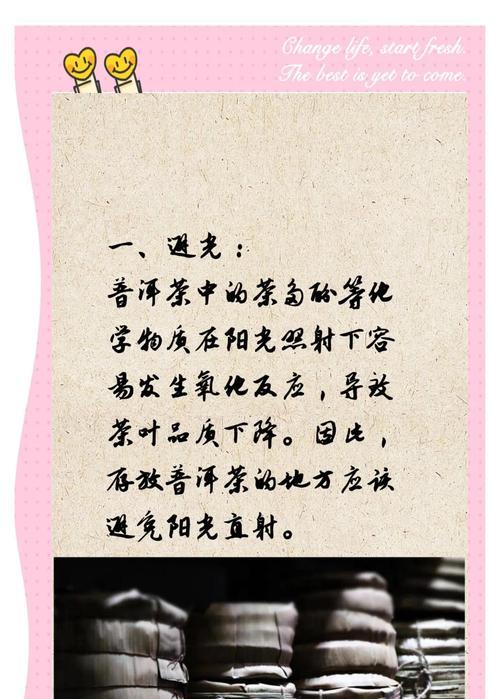 Change life, start fresh.
The best is yet to come.
一、避光：
普洱茶中的茶多酚等化
学物质在阳光照射下容
易发生氧化反应，导致
茶叶品质下降。因此，
存放普洱茶的地方应该
避免阳光直射。